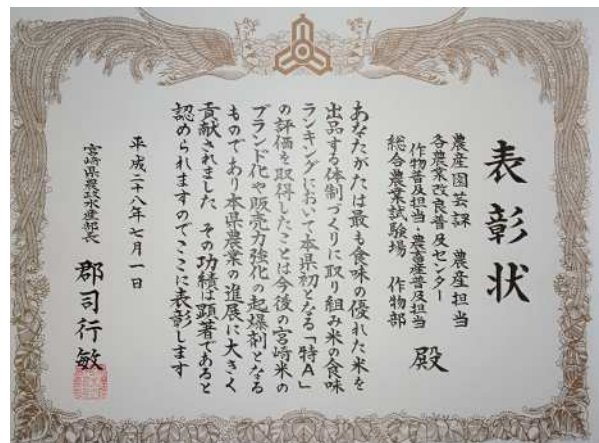 表彰状
農産園芸課 農産担当
各農業改良普及センター
作物普及担当・農畜産普及担当
総合農業試験場 作物部
殿
あなたがたは最も食味の優れた米を
出品する体制づくりに取り組み米の食味
ランキングにおいて本県初となる「特A」
の評価を取得したことは今後の宮崎米の
ブランド化や販売力強化の起爆剤となる
ものであり本県農業の進展に大きく
貢献されました その功績は顕著であると
認められますのでここに表彰します
平成二十八年七月一日
宮崎県農政水産部長 郡司行敏